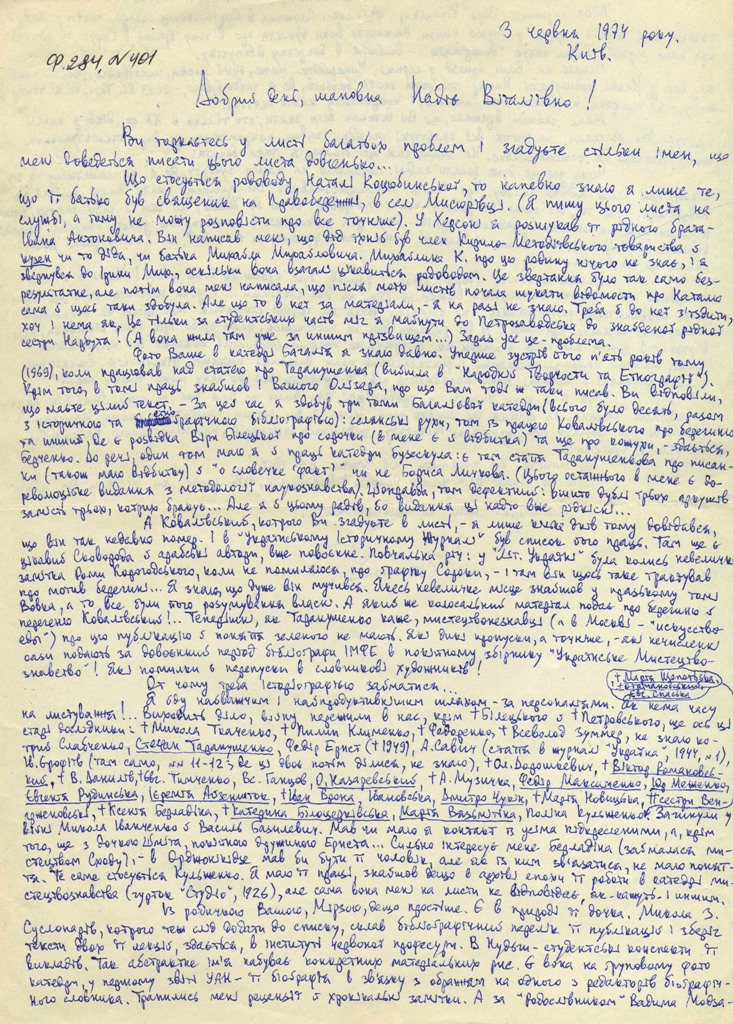 3 червня 1974 року.
Київ.
Ф.284, N 401
Добрий дні, шановна Надіє Віталіївно!
Ви торкаєтесь у листі багатьох проблем і згадуєте стільки імен, що
мені доведеться писати цього листа довгенько...
Що стосується родоводу Наталі Коцюбинської, то напевно знаю я лише те,
що її батько був священик на Правобережжі, в селі Мисюрівці. (Я пишу цього листа на
службі, а тому не можу розповісти про все точніше). У Херсоні я розшукав її рідного брата -
Івана Антоновича. Він написав мені, що дід їхній був член Кирило-Методіївського товариства й
кузен чи то діда, чи батька Михайла Михайловича. Михайлина К. про цю родину нічого не знає, і я
звернувся до Ірини Мих., оскільки вона взагалі цікавиться родоводом. Це звертання було так само без-
результатне, але потім вона мені написала, що після моїх листів почала шукати відомости про Наталю
сама й щось таки здобула. Але що то в неї за матеріали, - я на разі не знаю. Треба б до неї з'їздити,
хоч і нема як. Це тільки за студентських часів міг я майнути до Петрозаводська до знайденої рідної
сестри Нарбута! (А вона жила там уже за іншим прізвищем...) Зараз усе це - проблема.
Фото Ваше в катедрі Багалія я знаю давно. Уперше зустрів його п'ять років тому
(1969), коли працював над статею про Таранушенка (вийшла в "Народній Творчости та Етнографії").
Крім того, в тій праці знайшов і Вашого Олізара, про що Вам тоді ж таки писав. Ви відповіли,
що маєте цілий текст. - За цей час я здобув три томи Багалієвої катедри (всього було десять, разом
з історичною та етнографічною бібліографією): селянські рухи, том із працею Ковалівського про берегиню
та інший, де є розвідка Віри Білецької про сорочки (в мене є й відбитка) та ще про кожухи, - здається,
Берченко. До речі, один том маю я й праці катедри Бузескула: є там стаття Таранушенкова про писан-
ки (також маю відбитку) й "о словечке "факт" чи не Бориса Личкова. (Цього останнього в мене є до-
революційне видання з методології наукознавства). Щоправда, том дефектний: вшито дублі трьох аркушів
замість трьох, котрих бракує... Але я й цьому радів, бо видання ці надто вже рідкісні...
А Ковалівський, котрого Ви згадуєте в листі, - я лише кілька днів тому довідався,
що він так недавно помер. І в "Українському Історичному Журналі" був список його праць. Там ще є
цікавий Сковорода й арабські автори, вже повоєнне. Повчальна річ: у "Літ. Україні" була колись невеличка
замітка Роми Корогодського, коли не помиляюся, про графіку Сороки, - і там він щось таке трактував
про мотив берегині... Я знаю, що дуже він мучився. Якесь невеличке місце знайшов у празькому томі
Вовка, а то все були його розумування власні. А який же колосальний матеріал подає про берегиню й
перегеню Ковалівський!... Теперішні, як Таранушенко каже, мистецтвознавці (а в Москві - "искусство-
еды") про цю публікацію й поняття зеленого не мають. Які дикі пропуски, а точніше, - які нечисленні
оази подають за довоєнний період бібліографи ІМФЕ в помітному збірнику "Українське Мистецтво-
знавство"! Які помилки й перепуски в словникові художників!
От чому треба історіографією займатися...
Я йду найважчим і найпродуктивнішим шляхом - за персоналіями. Як нема часу
† Марія Щепотьєва,
† Стефановський,
† Євг. Спаська
на листування!.. Виховать діло, війну пережили в нас, крім † Білецького й † Петровського, ще ось ці
старі дослідники: † Микола Ткаченко, † Пилип Клименко, † Федоренко, † Всеволод Зуммер, не знаю ко-
трий Слабченко, Стефан Таранушенко, Федір Ернст († 1949), А. Савич (стаття в журналі "Україна", 1944, N 1),
Ів. Єрофіїв (там само, NN 11-12; де ці двоє потім ділися, не знаю), † Ол. Дорошкевич, † Віктор Романовсь-
кий, † В. Данилів, Євг. Тимченко, Вс. Ганцов, О. Назаревський, † А. Музичка, Федір Максименко, Юр Меженко,
Євгенія Рудинська, Ієремія Айзеншток, † Іван Врона, Івановська, Дмитро Чукин, † Марія Новицька, † сестри Вен-
гржиновські, † Ксенія Берладіна, † Катерина Білоцерківська, Марія Вязьмітіна, Поліна Кульженко. Загинули у
війні Микола Іванченко й Василь Базилевич. Мав чи маю я контакт із усіма підкресленими, а, крім
того, ще з дочкою Шміта, покійною дружиною Ернста... Сильно інтересує мене Берладіна (займалася ми-
стецтвом Сходу), - в Орджонікідзе мав би бути її чоловік, але як із ним зв'язатися, не маю понят-
тя. Те саме стосується Кульженко. Я маю її праці, знайшов дещо в архіві епохи її роботи в катедрі ми-
стецтвознавства (гурток "Студіо", 1926), але сама вона мені на листи не відповідає, як, кажуть, і іншим.
Із родичкою Вашою, Мірзою, дещо простіше. Є в природі її дочка. Микола З.
Суслопарів, котрого теж слід додати до списку, склав бібліографічний перелік її публікацій і зберіг
тексти двох її лекцій, здається, в інституті червоної професури. В Кудыш - студентські конспекти її
викладів. Так абстрактне ім'я набуває конкретних матеріяльних рис. Є вона на груповому фото
катедри, у першому звіті УАН - її біографія в зв'язку з обранням на одного з редакторів біографіч-
ного словника. Трапились мені рецензії й хронікальні замітки. А за "Родословником" Вадима Модза-